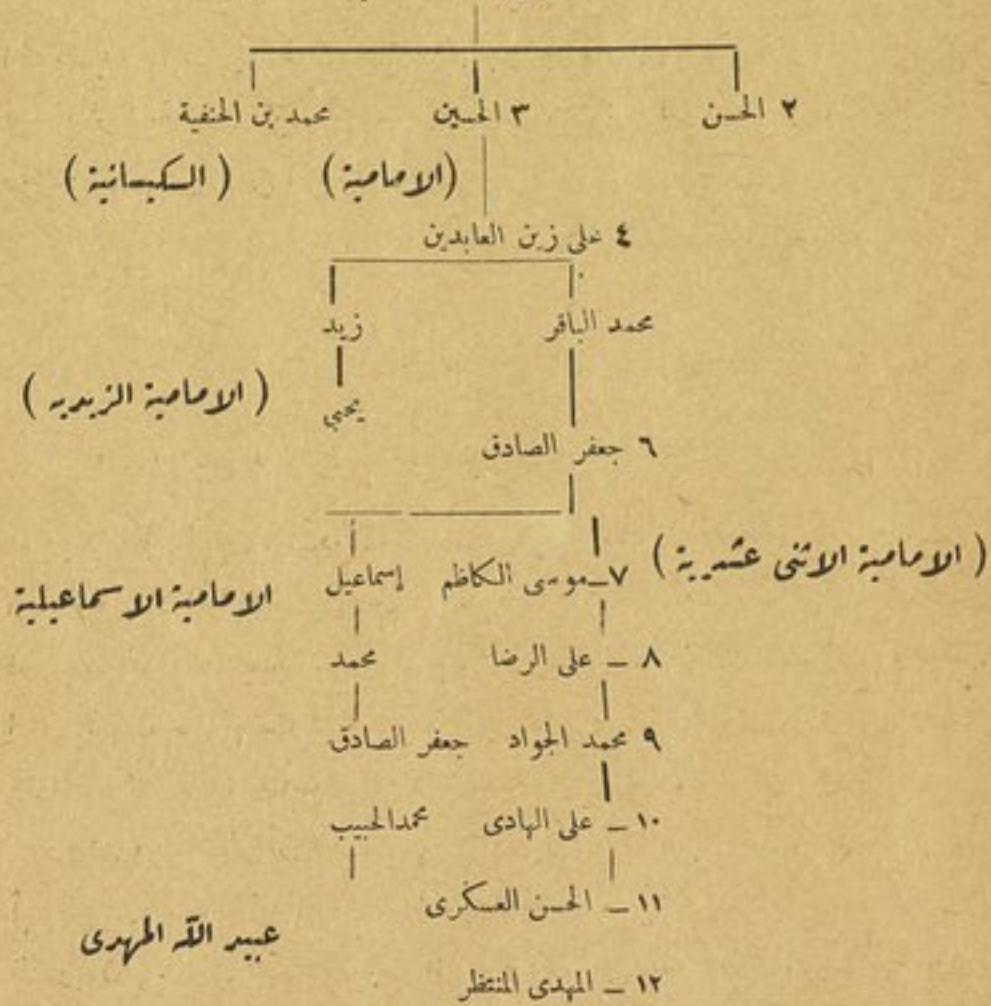 ٢ الحسن ٣ الحسين محمد بن الحنفية
(الامامية) (الكيسانية)
٤ على زين العابدين
محمد الباقر زيد
(الامامية الزيدية)
يحيى
٦ جعفر الصادق
(الامامية الاثنى عشرية) ٧ــموسى الكاظم إسماعيل الامامية الاسماعيلية
٨ ــ على الرضا محمد
٩ محمد الجواد جعفر الصادق
١٠ ــ على الهادى محمدالحبيب
١١ ــ الحسن العسكرى
عبيد الله المهدى
١٢ ــ المهدى المنتظر